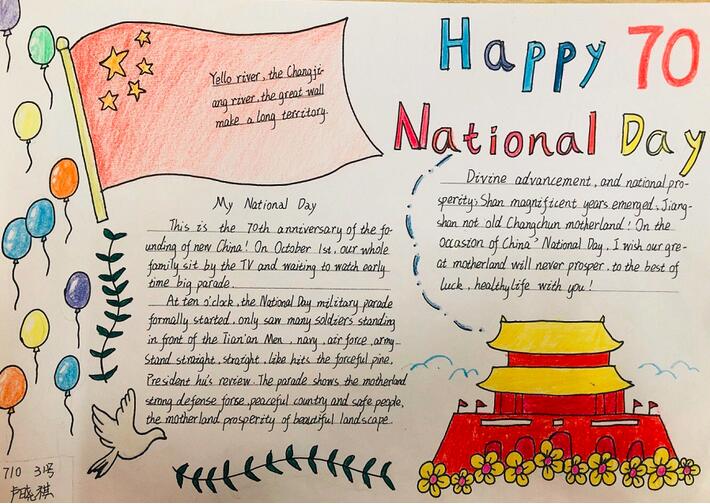 Happy 70
National Day
Yello river, the Changji-
ang river, the great wall
make a long territory.
My National Day
This is the 70th anniversary of the fo-
unding of new China! On October 1st, our whole
family sit by the TV and waiting to watch early
time big parade.
At ten o'clock, the National Day military parade
formally started, only saw many soldiers standing
in front of the Tian'an Men, navy, air force, army
stand straight, straight, like hits the forceful pine.
President hu's review. The parade shows the motherland
strong defense forse, peaceful country and safe people,
the motherland prosperity of beautiful landscape.
Divine advancement, and national pro-
sperity; Shan magnificent years emerged, Jiang-
shan not old Changchun motherland! On the
occasion of China' National Day, I wish our gre-
at motherland will never prosper, to the best of
luck, healthy life with you!
710 31号
卢晓祺